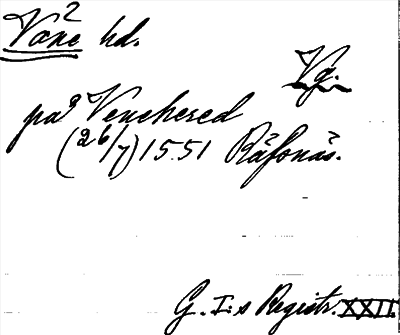 Vane hd.
Vg.
på Venehered
(26/7) 1551 Räfsnäs.
G. I:s Registr. XXII.